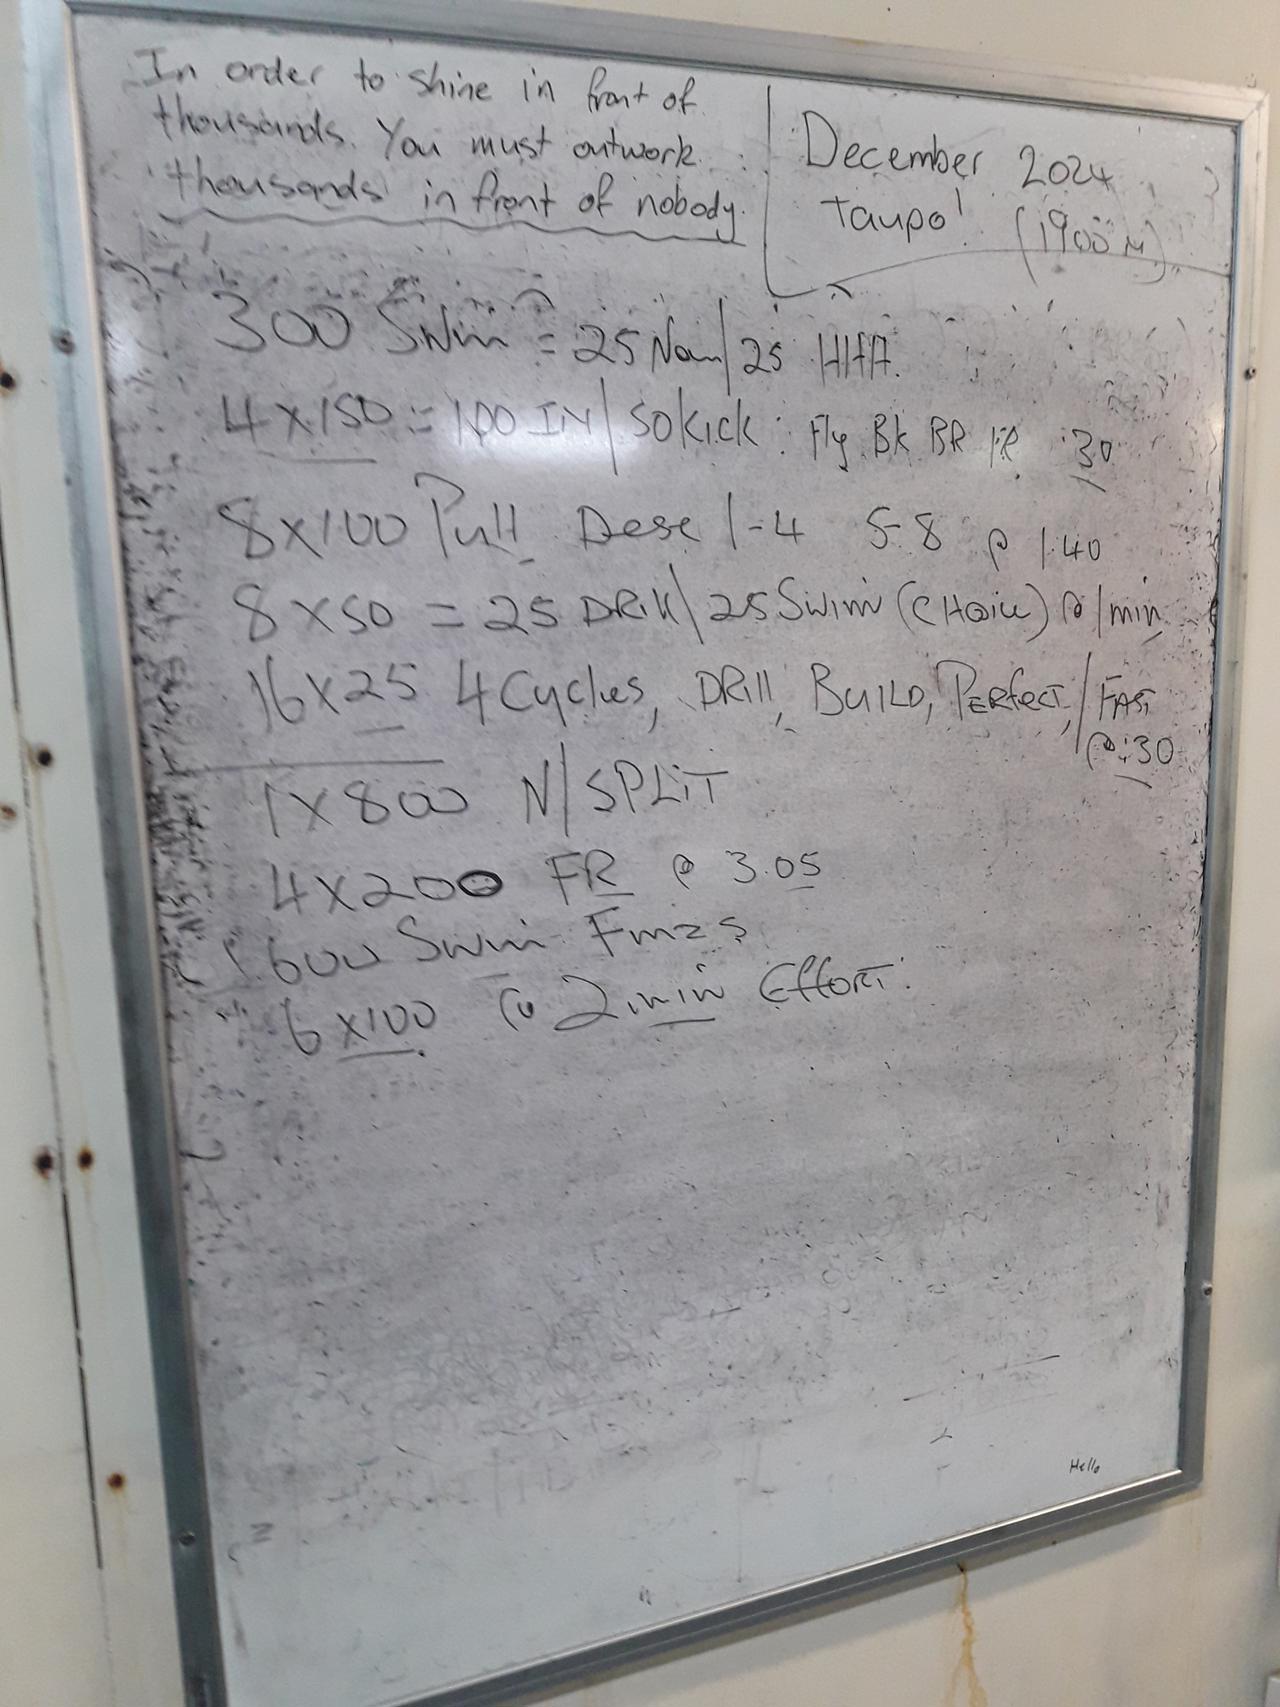 In order to shine in front of
thousands. You must outwork
thousands in front of nobody.
December 2024
Taupo!
(1900m)
300 Swim = 25 Nom/25 HHA.
4x150 = 100 IM/50 Kick : Fly Bk BR FR :30
8x100 Pull Desc 1-4 5-8 @ 1.40
8x50 = 25 DRill/25 Swim (CHoice) @ 1min
16x25 4 Cycles, DRill, BUILD, PERfecT/FAST
@ :30
1x800 N/SPLiT
4x200 FR @ 3.05
600 Swim
6x100 @ 2min EffoRT.
Hello